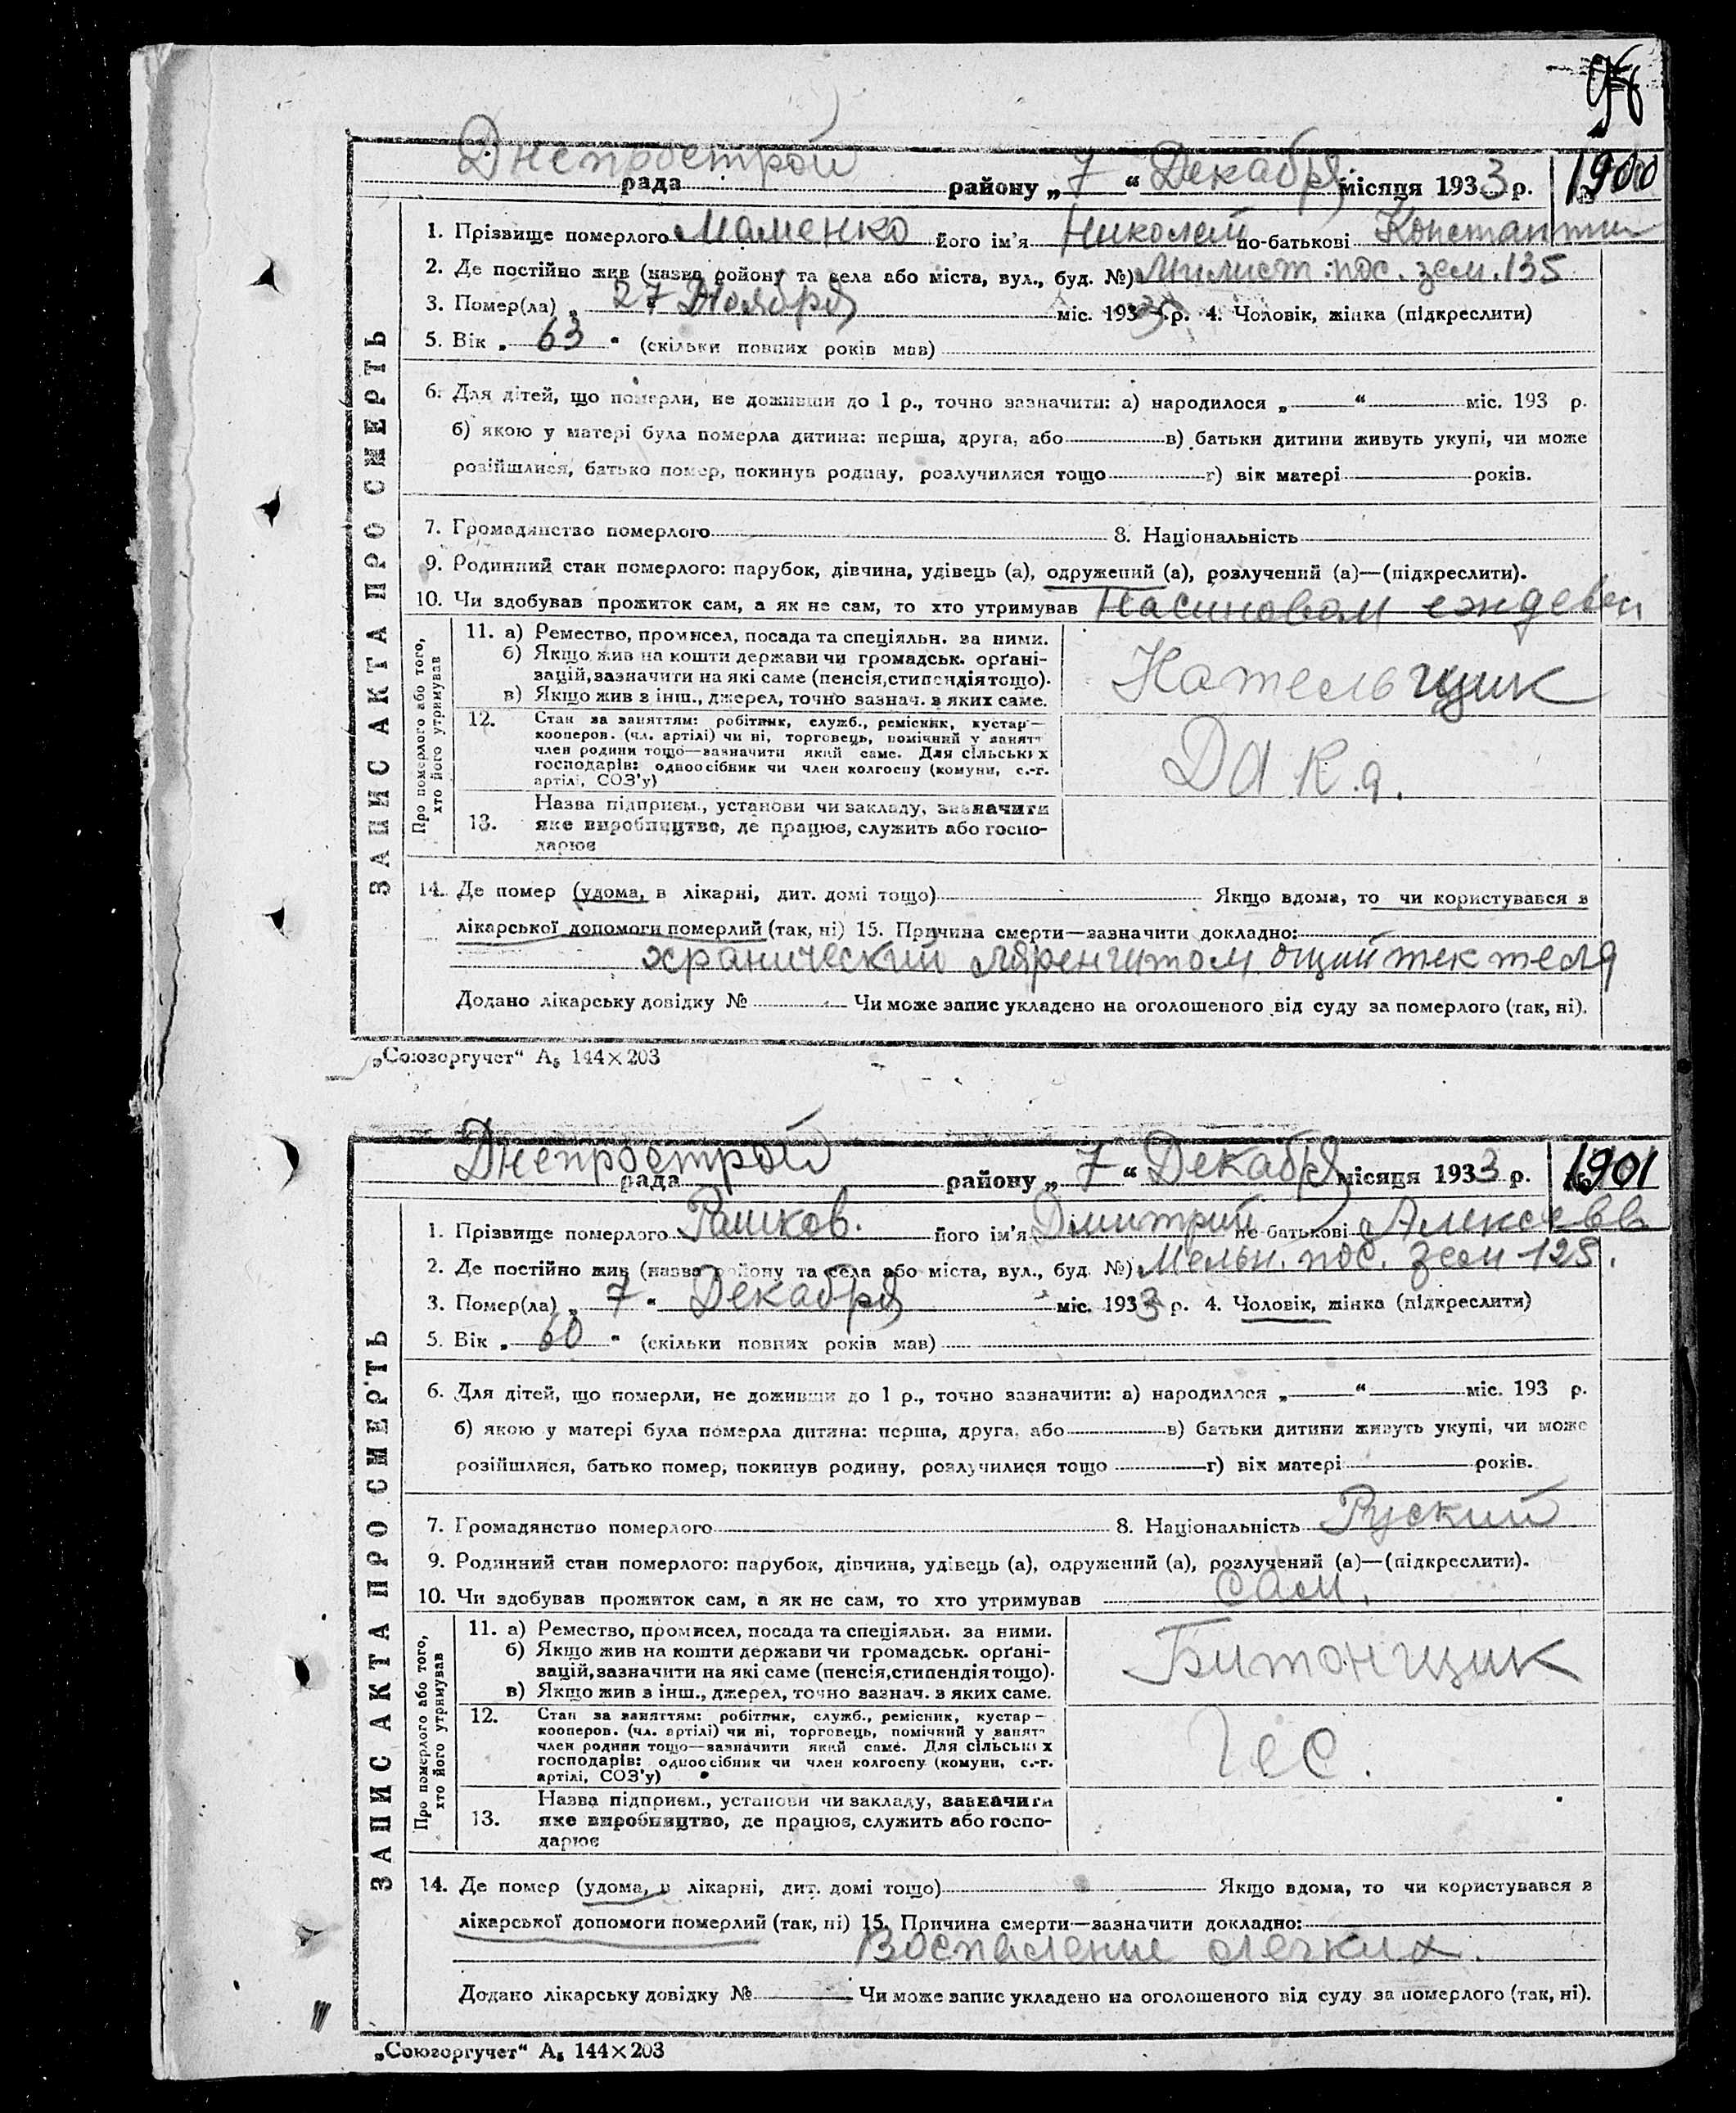 Днепрострой
рада району „ 7 “ Декабря місяця 1933 р. 1900
1. Прізвище померлого Маменко його ім'я Николай по-батькові Константин
2. Де постійно жив (назва району та села або міста, вул., буд. №) пос. зем. 135
3. Помер(ла) „ 27 Ноября міс. 1933 р. 4. Чоловік, жінка (підкреслити)
5. Вік „ 63 “ (скільки повних років мав)
6. Для дітей, що померли, не доживши до 1 р., точно зазначити: а) народилося „ “ міс. 193 р.
б) якою у матері була померла дитина: перша, друга, або в) батьки дитини живуть укупі, чи може
розійшлися, батько помер, покинув родину, розлучилися тощо г) вік матері років.
7. Громадянство померлого 8. Національність
9. Родинний стан померлого: парубок, дівчина, удівець (а), одружений (а), розлучений (а)—(підкреслити).
10. Чи здобував прожиток сам, а як не сам, то хто утримував
11. а) Ремество, промисел, посада та спеціяльн. за ними.
б) Якщо жив на кошти держави чи громадськ. орґані-
зацій, зазначити на які саме (пенсія, стипендія тощо).
в) Якщо жив з інш., джерел, точно зазнач. з яких саме.
Котельщик
12. Стан за заняттям: робітник, служб., ремісник, кустар—
кооперов. (чл. артілі) чи ні, торговець, помічний у занятт
член родини тощо—зазначити який саме. Для сільських
господарів: одноосібник чи член колгоспу (комуни, с.-г.
артілі, СОЗ'у)
13. Назва підприєм., установи чи закладу, зазначити
яке виробництво, де працює, служить або госпо-
дарює
Про померлого або того,
хто його утримував
ЗАПИС АКТА ПРО СМЕРТЬ
14. Де помер (удома, в лікарні, дит. домі тощо) Якщо вдома, то чи користувався з
лікарської допомоги померлий (так, ні) 15. Причина смерти—зазначити докладно:
хранический
Додано лікарську довідку № Чи може запис укладено на оголошеного від суду за померлого (так, ні).
„Союзоргучет“ А₅ 144×203
Днепрострой
рада району „ 7 “ Декабря місяця 1933 р. № 1901
1. Прізвище померлого Рашков. його ім'я Дмитрий по-батькові Алексеев
2. Де постійно жив (назва району та села або міста, вул., буд. №) Мельн. пос. зем 125.
3. Помер(ла) „ 7 “ Декабря міс. 1933 р. 4. Чоловік, жінка (підкреслити)
5. Вік „ 60 “ (скільки повних років мав)
6. Для дітей, що померли, не доживши до 1 р., точно зазначити: а) народилося „ “ міс. 193 р.
б) якою у матері була померла дитина: перша, друга, або в) батьки дитини живуть укупі, чи може
розійшлися, батько помер, покинув родину, розлучилися тощо г) вік матері років.
7. Громадянство померлого 8. Національність Руский
9. Родинний стан померлого: парубок, дівчина, удівець (а), одружений (а), розлучений (а)—(підкреслити).
10. Чи здобував прожиток сам, а як не сам, то хто утримував сам.
11. а) Ремество, промисел, посада та спеціяльн. за ними.
б) Якщо жив на кошти держави чи громадськ. орґані-
зацій, зазначити на які саме (пенсія, стипендія тощо).
в) Якщо жив з інш., джерел, точно зазнач. з яких саме.
Битонщик
12. Стан за заняттям: робітник, служб., ремісник, кустар—
кооперов. (чл. артілі) чи ні, торговець, помічний у занятт
член родини тощо—зазначити який саме. Для сільських
господарів: одноосібник чи член колгоспу (комуни, с.-г.
артілі, СОЗ'у)
Гес.
13. Назва підприєм., установи чи закладу, зазначити
яке виробництво, де працює, служить або госпо-
дарює
Про померлого або того,
хто його утримував
ЗАПИС АКТА ПРО СМЕРТЬ
14. Де помер (удома, в лікарні, дит. домі тощо) Якщо вдома, то чи користувався з
лікарської допомоги померлий (так, ні) 15. Причина смерти—зазначити докладно:
Воспаление олегких.
Додано лікарську довідку № Чи може запис укладено на оголошеного від суду за померлого (так, ні).
„Союзоргучет“ А₅ 144×203